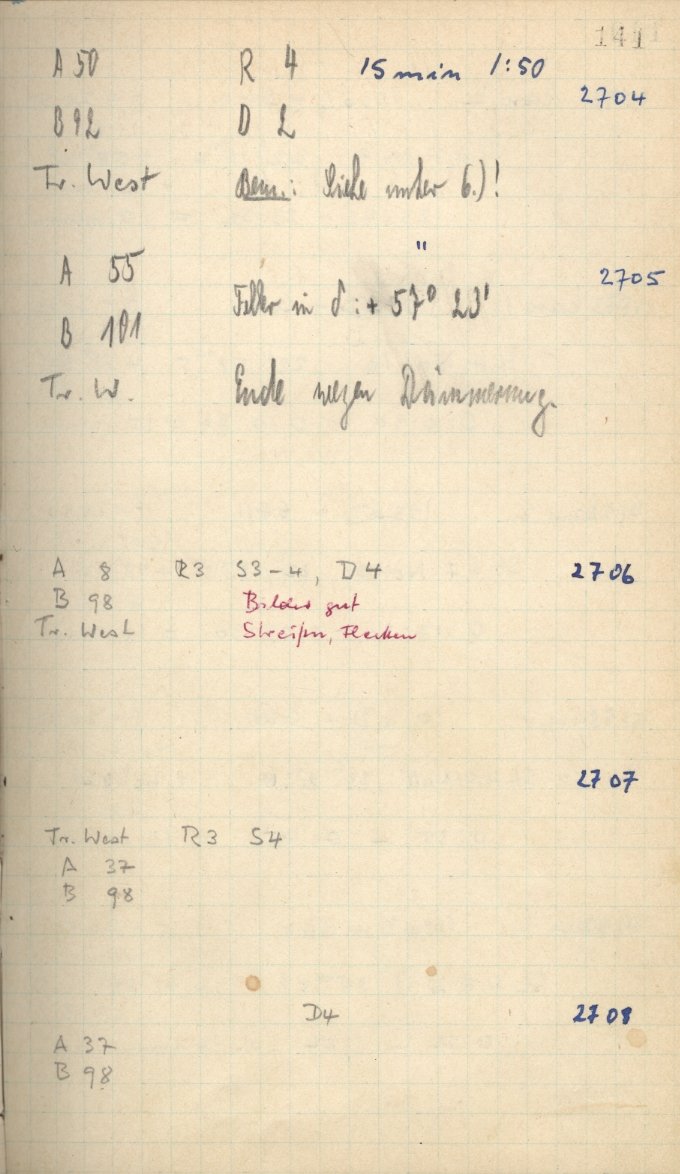 141
A 50 R 4 15 min 1:50
2704
B 92 D 2
Tr. West Bem.: Siehe unter 6.)!
"
A 55 2705
Fehler in δ: + 57° 23'
B 101
Tr. W. Ende wegen Dämmerung.
A 8 R3 S3-4, D4 2706
B 98 Bilder gut
Tr. West Streifen, Flecken
2707
Tr. West R3 S4
A 37
B 98
D4 2708
A 37
B 98